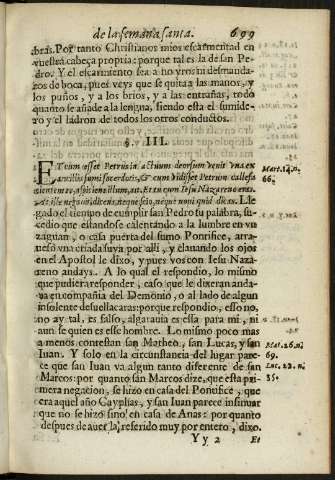 de la semana santa. 699
bras. Por tanto Christianos mios escarmentad en
vuestra cabeça propria: porque tal es la de san Pe-
dro. Y el escarmiento sea a no yros ni desmanda-
ros de boca, pues veys que se quita a las manos, y
los puños, y a los brios, y a las entrañas, todo
quanto se añade a la lengua, siendo esta el sumide-
ro y el ladron de todos los otros conductos.
§. III.
ET cum esset Petrus in atrium deorsum venit vna ex
ancillis sumi sacerdotis, & cum vidisset Petrum calefa
cientem se, aspiciens illum, ait. Et tu cum Iesu Nazareno eras.
At ille negauit dicens, neque scio, neque noui quid dicis. Lle-
gado el tiempo de cumplir san Pedro tu palabra, su-
cedio que estandose calentando a la lumbre en vn
zaguan, o casa puerta del sumo Pontifice, atra-
uesó vna criada suya por alli, y clauando los ojos
en el Apostol le dixo, y pues vos con Iesu Naza-
reno andays. A lo qual el respondio, lo mismo
que pudiera responder, caso que le dixeran anda-
ua en compañia del Demonio, o al lado de algun
insolente desuellacaras: porque respondio, esso no,
no ay tal, es falso, algarauia es essa para mi, ni
aun se quien es esse hombre. Lo mismo poco mas
a menos contestan san Matheo, san Lucas, y san
Iuan. Y solo en la circunstancia del lugar pare-
ce que san Iuan va algun tanto diferente de san
Marcos: por quanto san Marcos dize, que esta pri-
mera negacion, se hizo en casa del Pontifice, que
era aquel año Cayphas, y san Iuan parece insinuar
que no se hizo sino en casa de Anas: por quanto
despues de auerla referido muy por entero, dixo.
Yy 2 Et
Mar. 14. n.
66.
Mat. 26. n.
69.
Luc. 22. n.